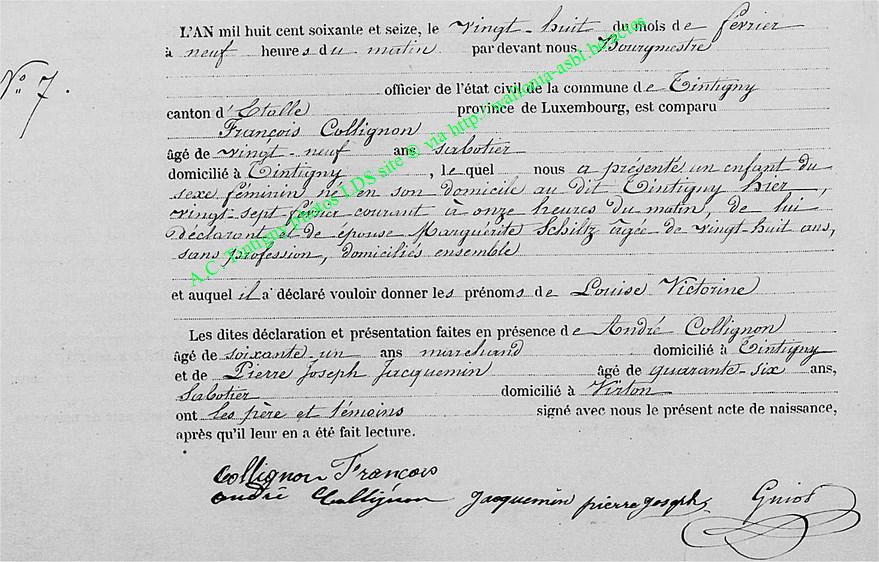 L'AN mil huit cent soixante et seize, le vingt-huit du mois de février
à neuf heures du matin par devant nous Bourgmestre
N° 7.
officier de l'état civil de la commune de Tintigny
canton d'Etalle province de Luxembourg, est comparu
François Collignon
âgé de vingt-neuf ans sabotier
domicilié à Tintigny, le quel nous a présenté un enfant du
sexe féminin né en son domicile au dit Tintigny hier,
vingt-sept février courant à onze heures du matin, de lui
déclarant et de épouse Marguerite Schiltz agée de vingt-huit ans,
sans profession, domiciliés ensemble
et auquel il a déclaré vouloir donner les prénoms de Louise Victorine
Les dites déclaration et présentation faites en présence de André Collignon
âgé de soixante-un ans marchand domicilié à Tintigny
et de Pierre Joseph Jacquemin âgé de quarante-six ans,
Sabotier domicilié à Virton
ont les père et témoins signé avec nous le présent acte de naissance,
après qu'il leur en a été fait lecture.
Collignon François
andré Collignon Jacquemin pierre joseph Guiot
A.C. Tintigny photos LDS site © via http://wallonia-asbl.be/actes